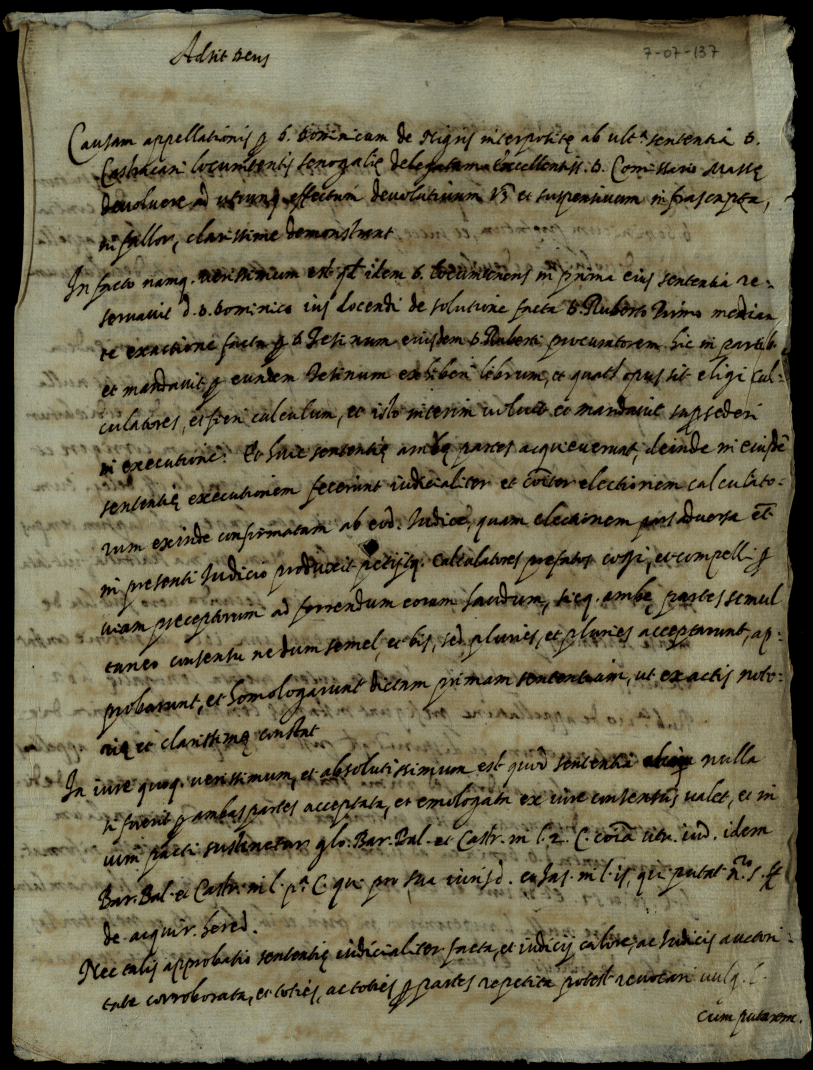 Adsit Deus
7-07-137
Causam appellationis p D. Dominicum de Nigris interpositę ab ult.ᵃ sententia D.
Castracani locumtentis senogalię delegatam excellentiss. D. Comissario Massę
devolvere ad utrunq effectum devolutivum vz et suspensivum infrascripta,
ni fallor, clarissime demonstrant
In facto namq. verissimum est qd idem D. locumtenens in prima eius sententia re-
servavit d. D. Dominico ius docendi de solutione facta D. Ruberto Primo median
te exactione facta p D. Jesinum eiusdem D. Ruberti procuratorem hic in partib.
et mandavit p eundem Jesinum exhiberi librum, et quat. opus sit eligi cal-
culatores, et fieri calculum, et isto interim voluit et mandavit supsederi
in executione. Et huic sententię ambę partes acquieverunt, deinde in eiusdē
sententię executionem fecerunt iudicialiter et coīter electionem calculato-
rum exinde confirmatam ab eod. Iudice, quam electionem pars adversa et
in presenti Iudicio produxit petijtq. calculatores prefatos cogi, et compelli p
viam preceptorum ad ferrendum eorum laudum, sicq. ambę partes semul
taneo consensu nedum semel, et bis, sed pluries, et pluries acceptarunt, ap-
probarunt, et homologarunt dictam primam sententiam, ut ex actis noto-
rię et clarissimę constat
In iure quoq. verissimum, et absolutissimum est quod sententia nulla
si fuerit p ambas partes acceptata, et emologata ex vire consensus valet, et in
vim pacti sustinetur glo. Bar. Bal. et Castr. in l. 2. C. coīa utr. iud. idem
Bar. Bal. et Castr. in l. pᵃ C. qu. pro sua iurisd. et Jas. in l. is, qui putat nᵒ 5. ff
de acquir. hered.
Nec talis approbatio sententię iudicialiter facta, et iudicij calore, ac Iudicis auctori-
tate corroborata, et toties, ac toties p partes repetita potest revocari vulg. l.
cum putarem.